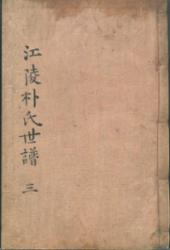 江陵朴氏世譜 三